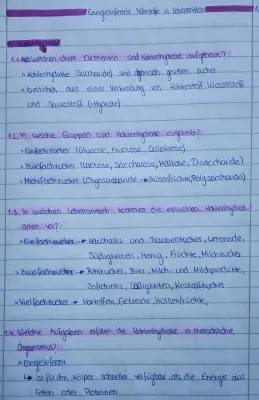 Energieliefernde Nährstoffe in Lebensmitteln
1. Kohlenhydrate
1.1 Aus welchen chem. Elementen sind Kohlenhydrate aufgebaut?
> Kohlenhydrate (Saccharide) sind chemisch gesehen Zucker
> bestehen aus einer Verbindung von Kohlenstoff, Wasserstoff
und Sauerstoff (=Hydrate)
1.2. In welche Gruppen sind Kohlenhydrate eingeteilt?
> Einfachzucker (Glucose, Fructose, Galaktose)
> Zweifachzucker (Lactose, Saccharose, Maltose, Disaccharide)
> Mehrfachzucker (Oligosaccharide → Hülsenfrüchte, Polysaccharide)
1.3. In welchen Lebensmitteln kommen die einzelnen Kohlenhydrat-
arten vor?
> Einfachzucker → Haushalts und Traubenzucker, Limonade,
Süßigkeiten, Honig, Früchte, Milchzucker
> Zweifachzucker → Rohrzucker, Bier, Milch- und Milchprodukte,
Softdrinks, Süßigkeiten, Kristallzucker
> Vielfachzucker → Kartoffeln, Getreide, Hülsenfrüchte,
1.4. Welche Aufgaben erfüllen die Kohlenhydrate im menschliche
Organismus?
> Energielieferant
↳ ist für den Körper schneller verfügbar als die Energie aus
Fetten oder Proteinen